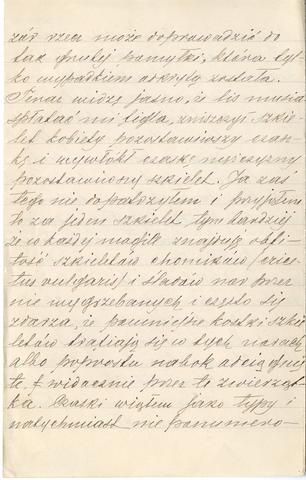 zás rzecz może doprowadzić do
tak grubej pomyłki, która tyl-
ko wypadkiem odkrytą została.
Teraz widzę jasno, że lis musiał
spłatać mi figla, zniszczył szkie-
let kobiety pozostawiwszy czasz-
kę i wywlókł czaszkę mężczyzny
pozostawiony szkielet. Ja zaś
tego nie dopatrzyłem i przyjąłem
to za jeden szkielet tym bardziej
że w każdej mogile znajduję obfi-
tość szkieletów chomików (cric-
tus vulgaris) i śladów nor przez
nie wygrzebanych i często się
zdarza, że pomniejsze kostki szkie-
letów tratiają się w tych norach,
albo poprostu nabok odciągnię-
te, widocznie przez te zwierząt-
ka. Czaszki wziąłem jako typy i
natychmiast nie ponumero-